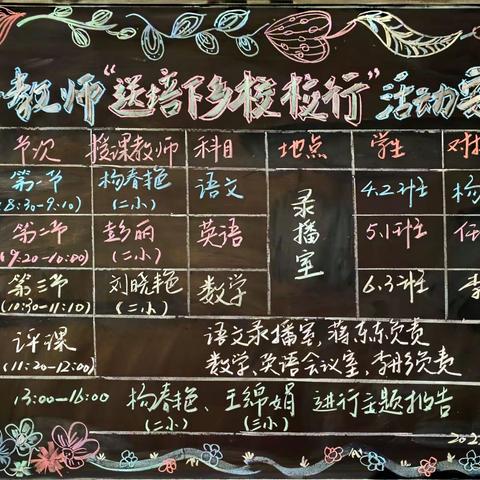 教师“送培下乡校校行”活动
节次 授课教师 科目 地点 学生
第一节 杨春艳 语文 录播室 4.2班 杨
(8:30-9:10) (二小)
第二节 彭丽 英语 5.1班 任
(9:20-10:00) (二小)
第三节 刘晓艳 数学 6.3班 李
(10:30-11:10) (二小)
评课 语文录播室,蒋东东负责
(11:20-12:00) 数学,英语会议室,李彤负责
13:00-16:00 杨春艳、王绵娟 进行主题报告
(二小) (三小)
202